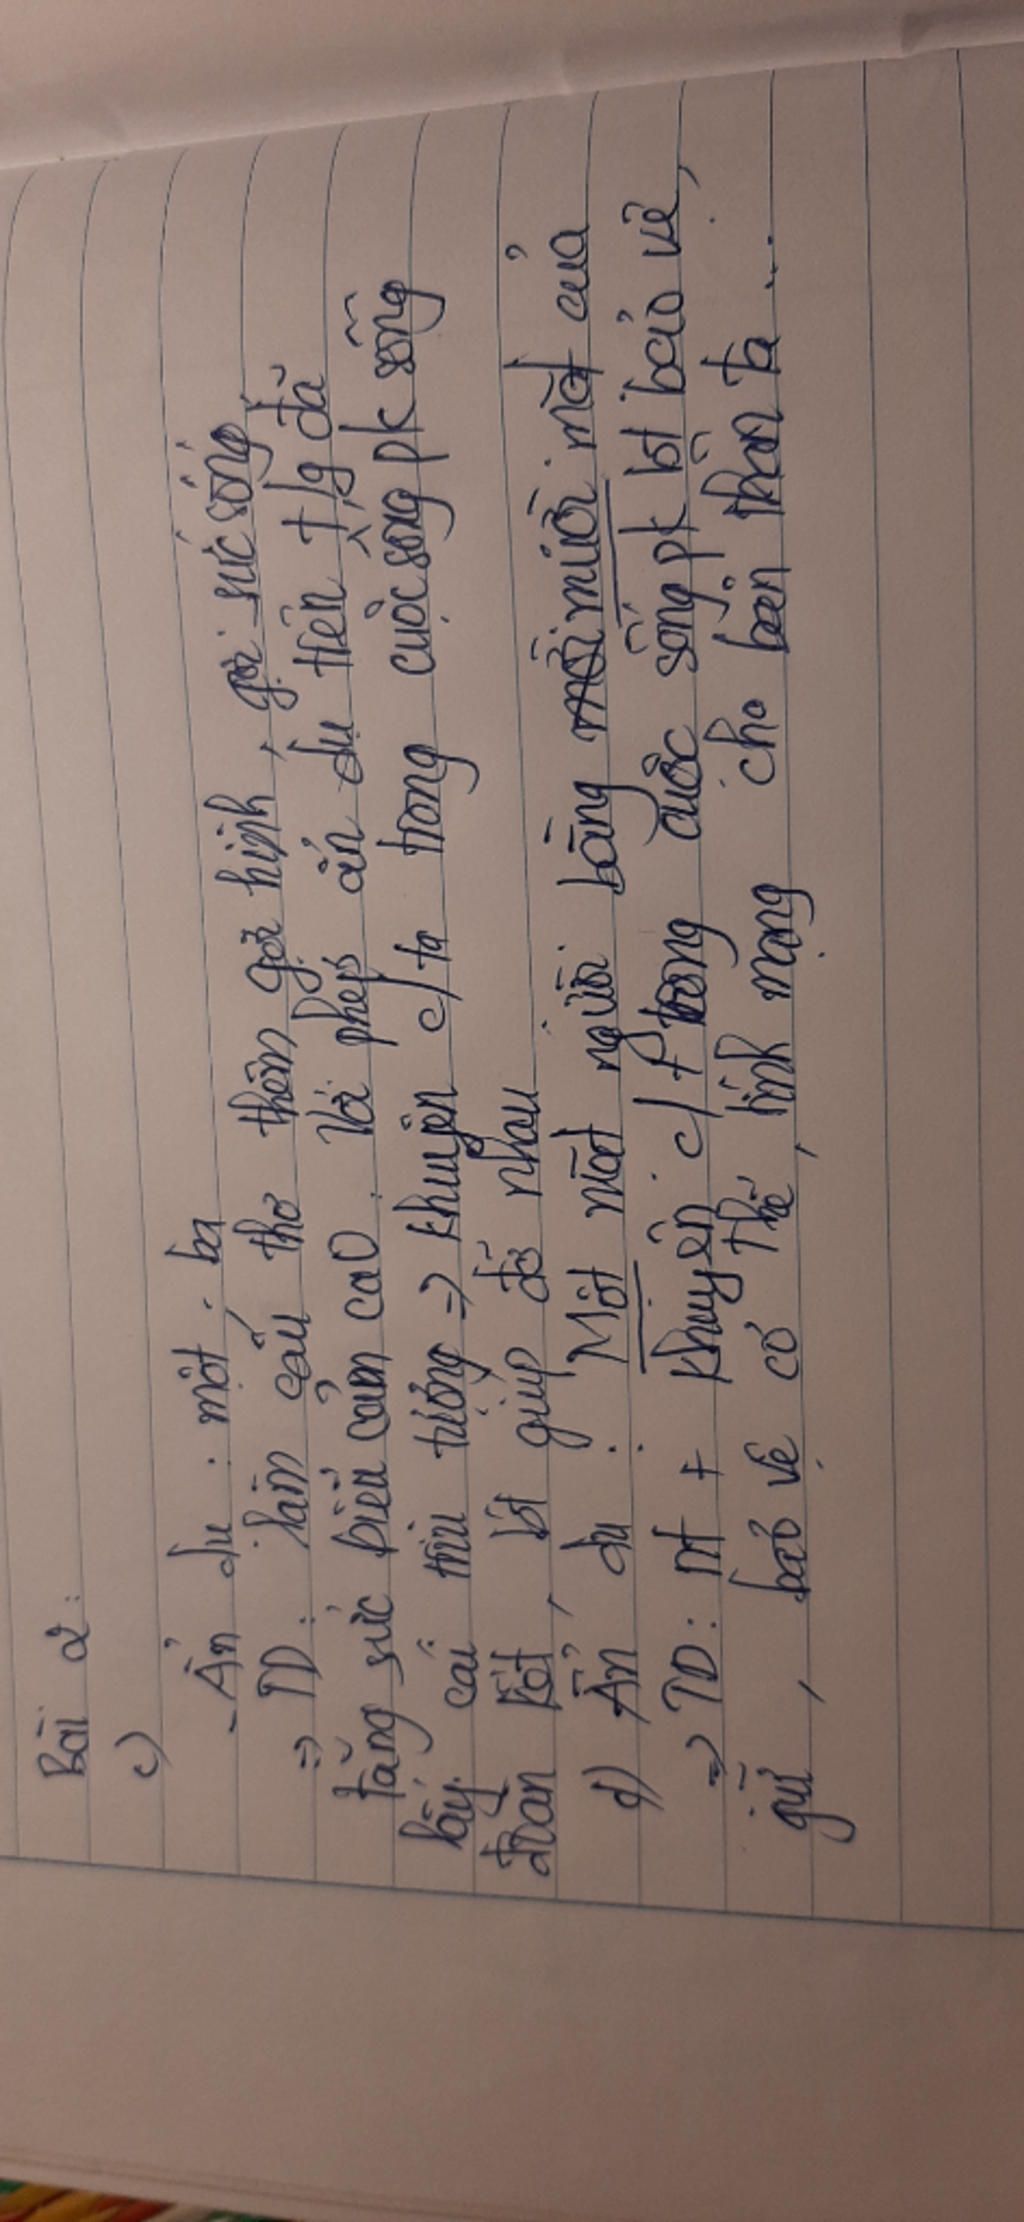 Bài 2:
c)
- Ẩn dụ: một, ba
=> TD: làm câu thơ thêm gợi hình, gợi sức sống
tăng sức biểu cảm cao. Với phép ẩn dụ trên t/g đã
lấy cái trìu tượng => khuyên c/ta trong cuộc sống pk sống
đoàn kết, bt giúp đỡ nhau
d) Ẩn dụ: Một mặt người bằng mười mặt của
=> TD: nt + khuyên c/t trong cuộc sống pk bt bảo vệ,
giữ, bảo vệ cơ thể, tính mạng cho bản thân ta...